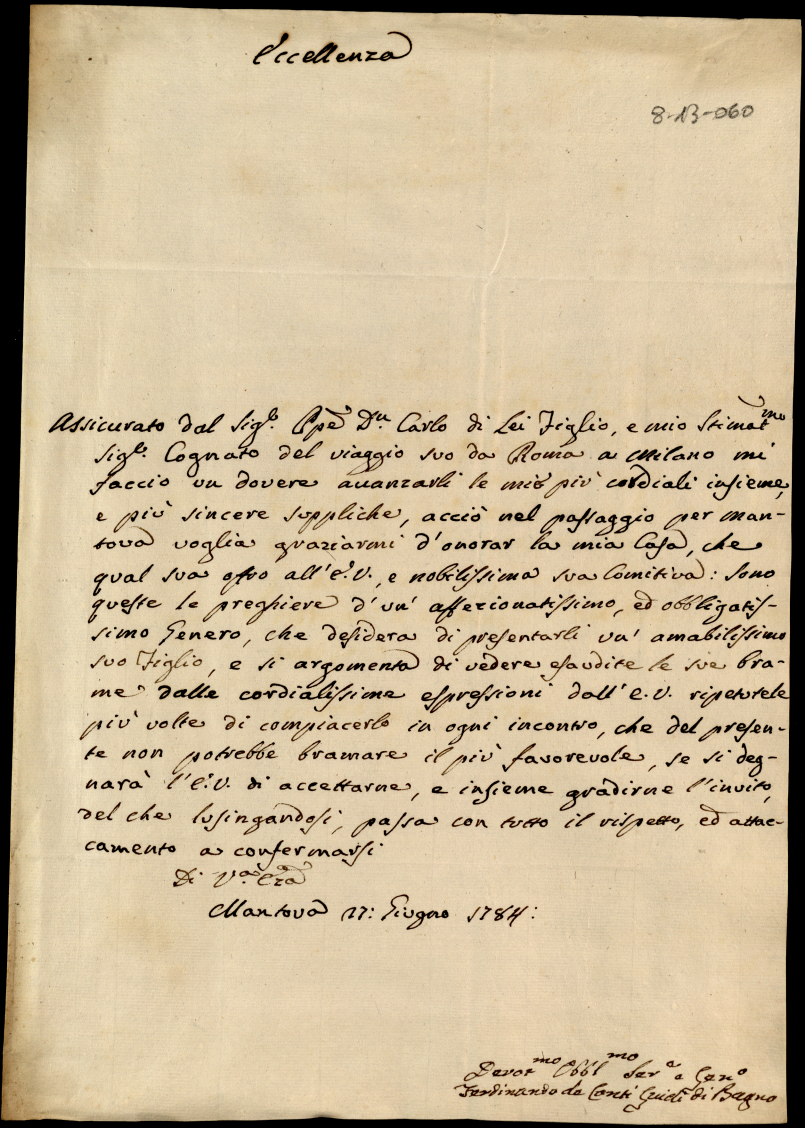 Eccellenza
8-13-060
Assicurato dal Sigr. Ppe Dn. Carlo di Lei Figlio, e mio Stimatmo
Sigr. Cognato del viaggio suo da Roma a Milano mi
faccio un dovere avanzarli le mie più cordiali insieme,
e più sincere suppliche, acciò nel passaggio per Man-
tova voglia graziarmi d'onorar la mia Casa, che
qual sua offro all'E.V., e nobilissima sua Comitiva: Sono
queste le preghiere d'un' affezionatissimo, ed obbligatis-
simo Genero, che desidera di presentarli un' amabilissimo
suo Figlio, e si argomenta di vedere esaudite le sue bra-
me dalle cordialissime espressioni dall' E.V. ripetutele
più volte di compiacerlo in ogni incontro, che del presen-
te non potrebbe bramare il più favorevole, se si deg-
narà l'E.V. di accettarne, e insieme gradirne l'invito,
del che lusingandosi, passa con tutto il rispetto, ed attac-
camento a confermarsi
Di Va. Eza
Mantova 17: Giugno 1784:
Devotmo Obblmo Sera e Geno
Ferdinando de Conti Guidi di Bagno